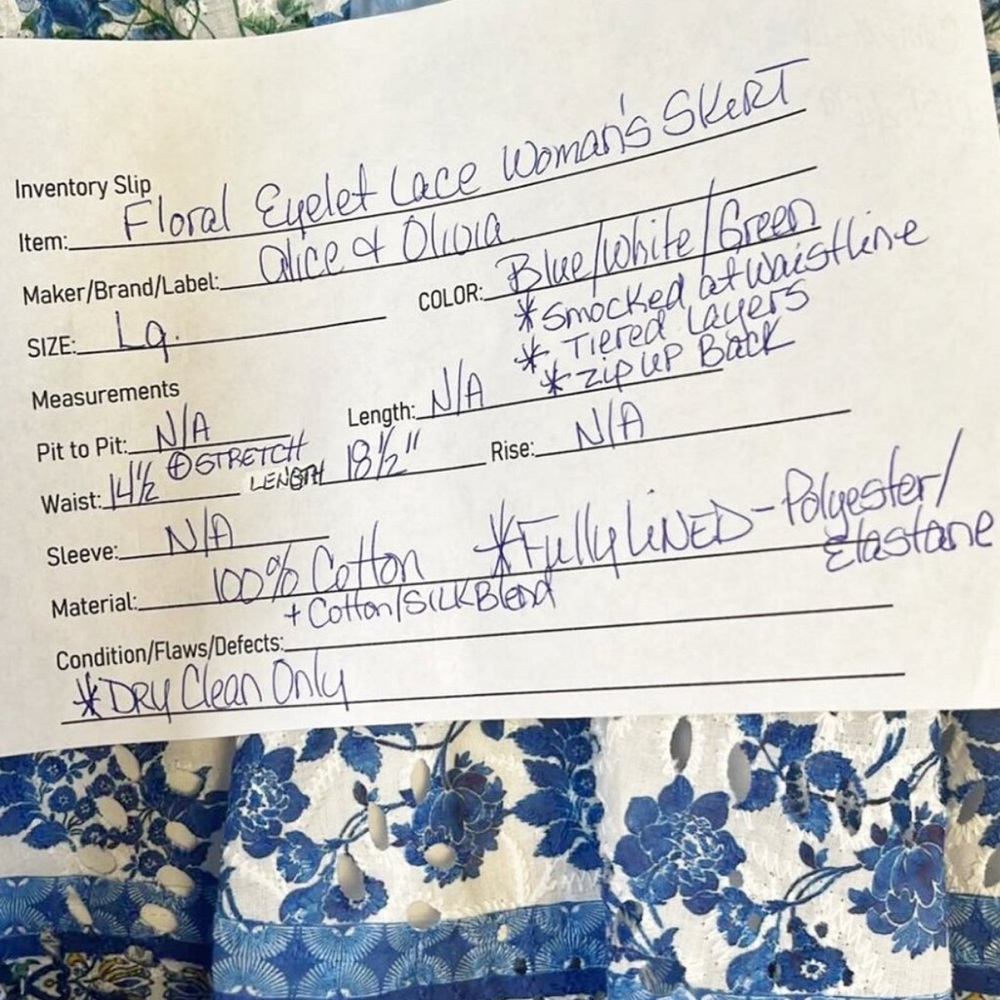 Inventory Slip
Item: Floral Eyelet Lace Woman's SKIRT
Maker/Brand/Label: Alice & Olivia
SIZE: Lg. COLOR: Blue/White/Green
* Smocked at Waistline
* Tiered Layers
* Zip UP Back
Measurements
Pit to Pit: N/A Length: N/A
Waist: 14½ ⊕ STRETCH LENGTH 18½" Rise: N/A
Sleeve: N/A
Material: 100% Cotton * Fully LINED - Polyester/
Elastane
+ Cotton/SILK Blend
Condition/Flaws/Defects:
* DRY Clean Only